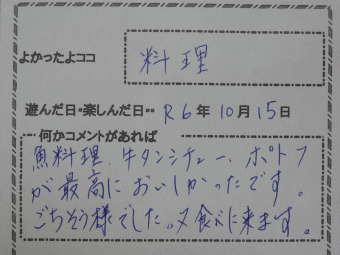 よかったよココ 料理
遊んだ日・楽しんだ日・・ R6年10月15日
何かコメントがあれば
魚料理、牛タンシチュー、ポトフ
が最高においしかったです。
ごちそう様でした。又食べに来ます。